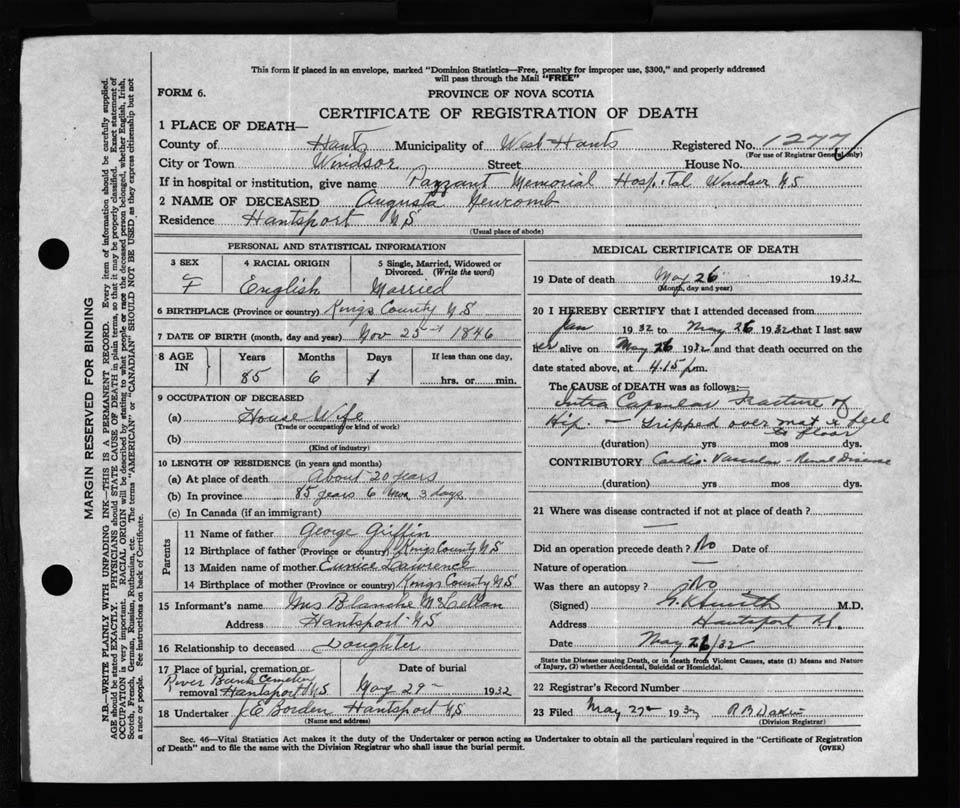 This form if placed in an envelope, marked "Dominion Statistics—Free, penalty for improper use, $300," and properly addressed
will pass through the Mail "FREE"
FORM 6.
PROVINCE OF NOVA SCOTIA
CERTIFICATE OF REGISTRATION OF DEATH
1 PLACE OF DEATH—
County of Hants Municipality of West Hants Registered No. 1277
(For use of Registrar General only)
City or Town Windsor Street House No.
If in hospital or institution, give name Payzant Memorial Hospital Windsor NS
2 NAME OF DECEASED Augusta Newcomb
Residence Hantsport NS
(Usual place of abode)
PERSONAL AND STATISTICAL INFORMATION
3 SEX 4 RACIAL ORIGIN 5 Single, Married, Widowed or Divorced. (Write the word)
F English Married
6 BIRTHPLACE (Province or country) Kings County NS
7 DATE OF BIRTH (month, day and year) Nov 25 1846
8 AGE IN Years Months Days If less than one day,
85 6 1 hrs. or min.
9 OCCUPATION OF DECEASED
(a) House Wife
(Trade or occupation or kind of work)
(b)
(Kind of industry)
10 LENGTH OF RESIDENCE (in years and months)
(a) At place of death About 20 years
(b) In province 85 years 6 mos 3 days
(c) In Canada (if an immigrant)
Parents
11 Name of father George Griffin
12 Birthplace of father (Province or country) Kings County NS
13 Maiden name of mother Eunice Lawrence
14 Birthplace of mother (Province or country) Kings County NS
15 Informant's name Mrs Blanche McLellan
Address Hantsport NS
16 Relationship to deceased Daughter
17 Place of burial, cremation or removal River Bank Cemetery Hantsport NS
Date of burial May 29 1932
18 Undertaker J E Borden Hantsport NS
(Name and address)
MEDICAL CERTIFICATE OF DEATH
19 Date of death May 26 1932
(Month, day and year)
20 I HEREBY CERTIFY that I attended deceased from
Jan 1932 to May 26 1932 that I last saw
her alive on May 26 1932 and that death occurred on the
date stated above, at 4.15 pm.
The CAUSE OF DEATH was as follows:—
Intra Capsular Fracture of
Hip. — Tripped over mat & fell
to floor
(duration) yrs mos dys.
CONTRIBUTORY Cardio-Vascular-Renal Disease
(duration) yrs. mos. dys.
21 Where was disease contracted if not at place of death?
Did an operation precede death? No Date of
Nature of operation
Was there an autopsy? No
(Signed) M.D.
Address Hantsport
Date May 26/32
State the Disease causing Death, or in death from Violent Causes, state (1) Means and Nature
of Injury, (2) whether Accidental, Suicidal or Homicidal.
22 Registrar's Record Number
23 Filed May 27 1932 R B Dakin
(Division Registrar)
Sec. 46—Vital Statistics Act makes it the duty of the Undertaker or person acting as Undertaker to obtain all the particulars required in the "Certificate of Registration
of Death" and to file the same with the Division Registrar who shall issue the burial permit.
(OVER)
MARGIN RESERVED FOR BINDING
N.B.—WRITE PLAINLY WITH UNFADING INK—THIS IS A PERMANENT RECORD. Every item of information should be carefully supplied.
AGE should be stated EXACTLY. PHYSICIANS should STATE CAUSE OF DEATH in plain terms, so that it may be properly classified. Exact statement of
OCCUPATION is very important. RACIAL ORIGIN will be described by stating to what people or race the deceased person belonged, whether English, Irish,
Scotch, French, German, Russian, Ruthenian, etc. The terms "AMERICAN" or "CANADIAN" SHOULD NOT BE USED, as they express citizenship but not
a race or people. See instructions on back of Certificate.